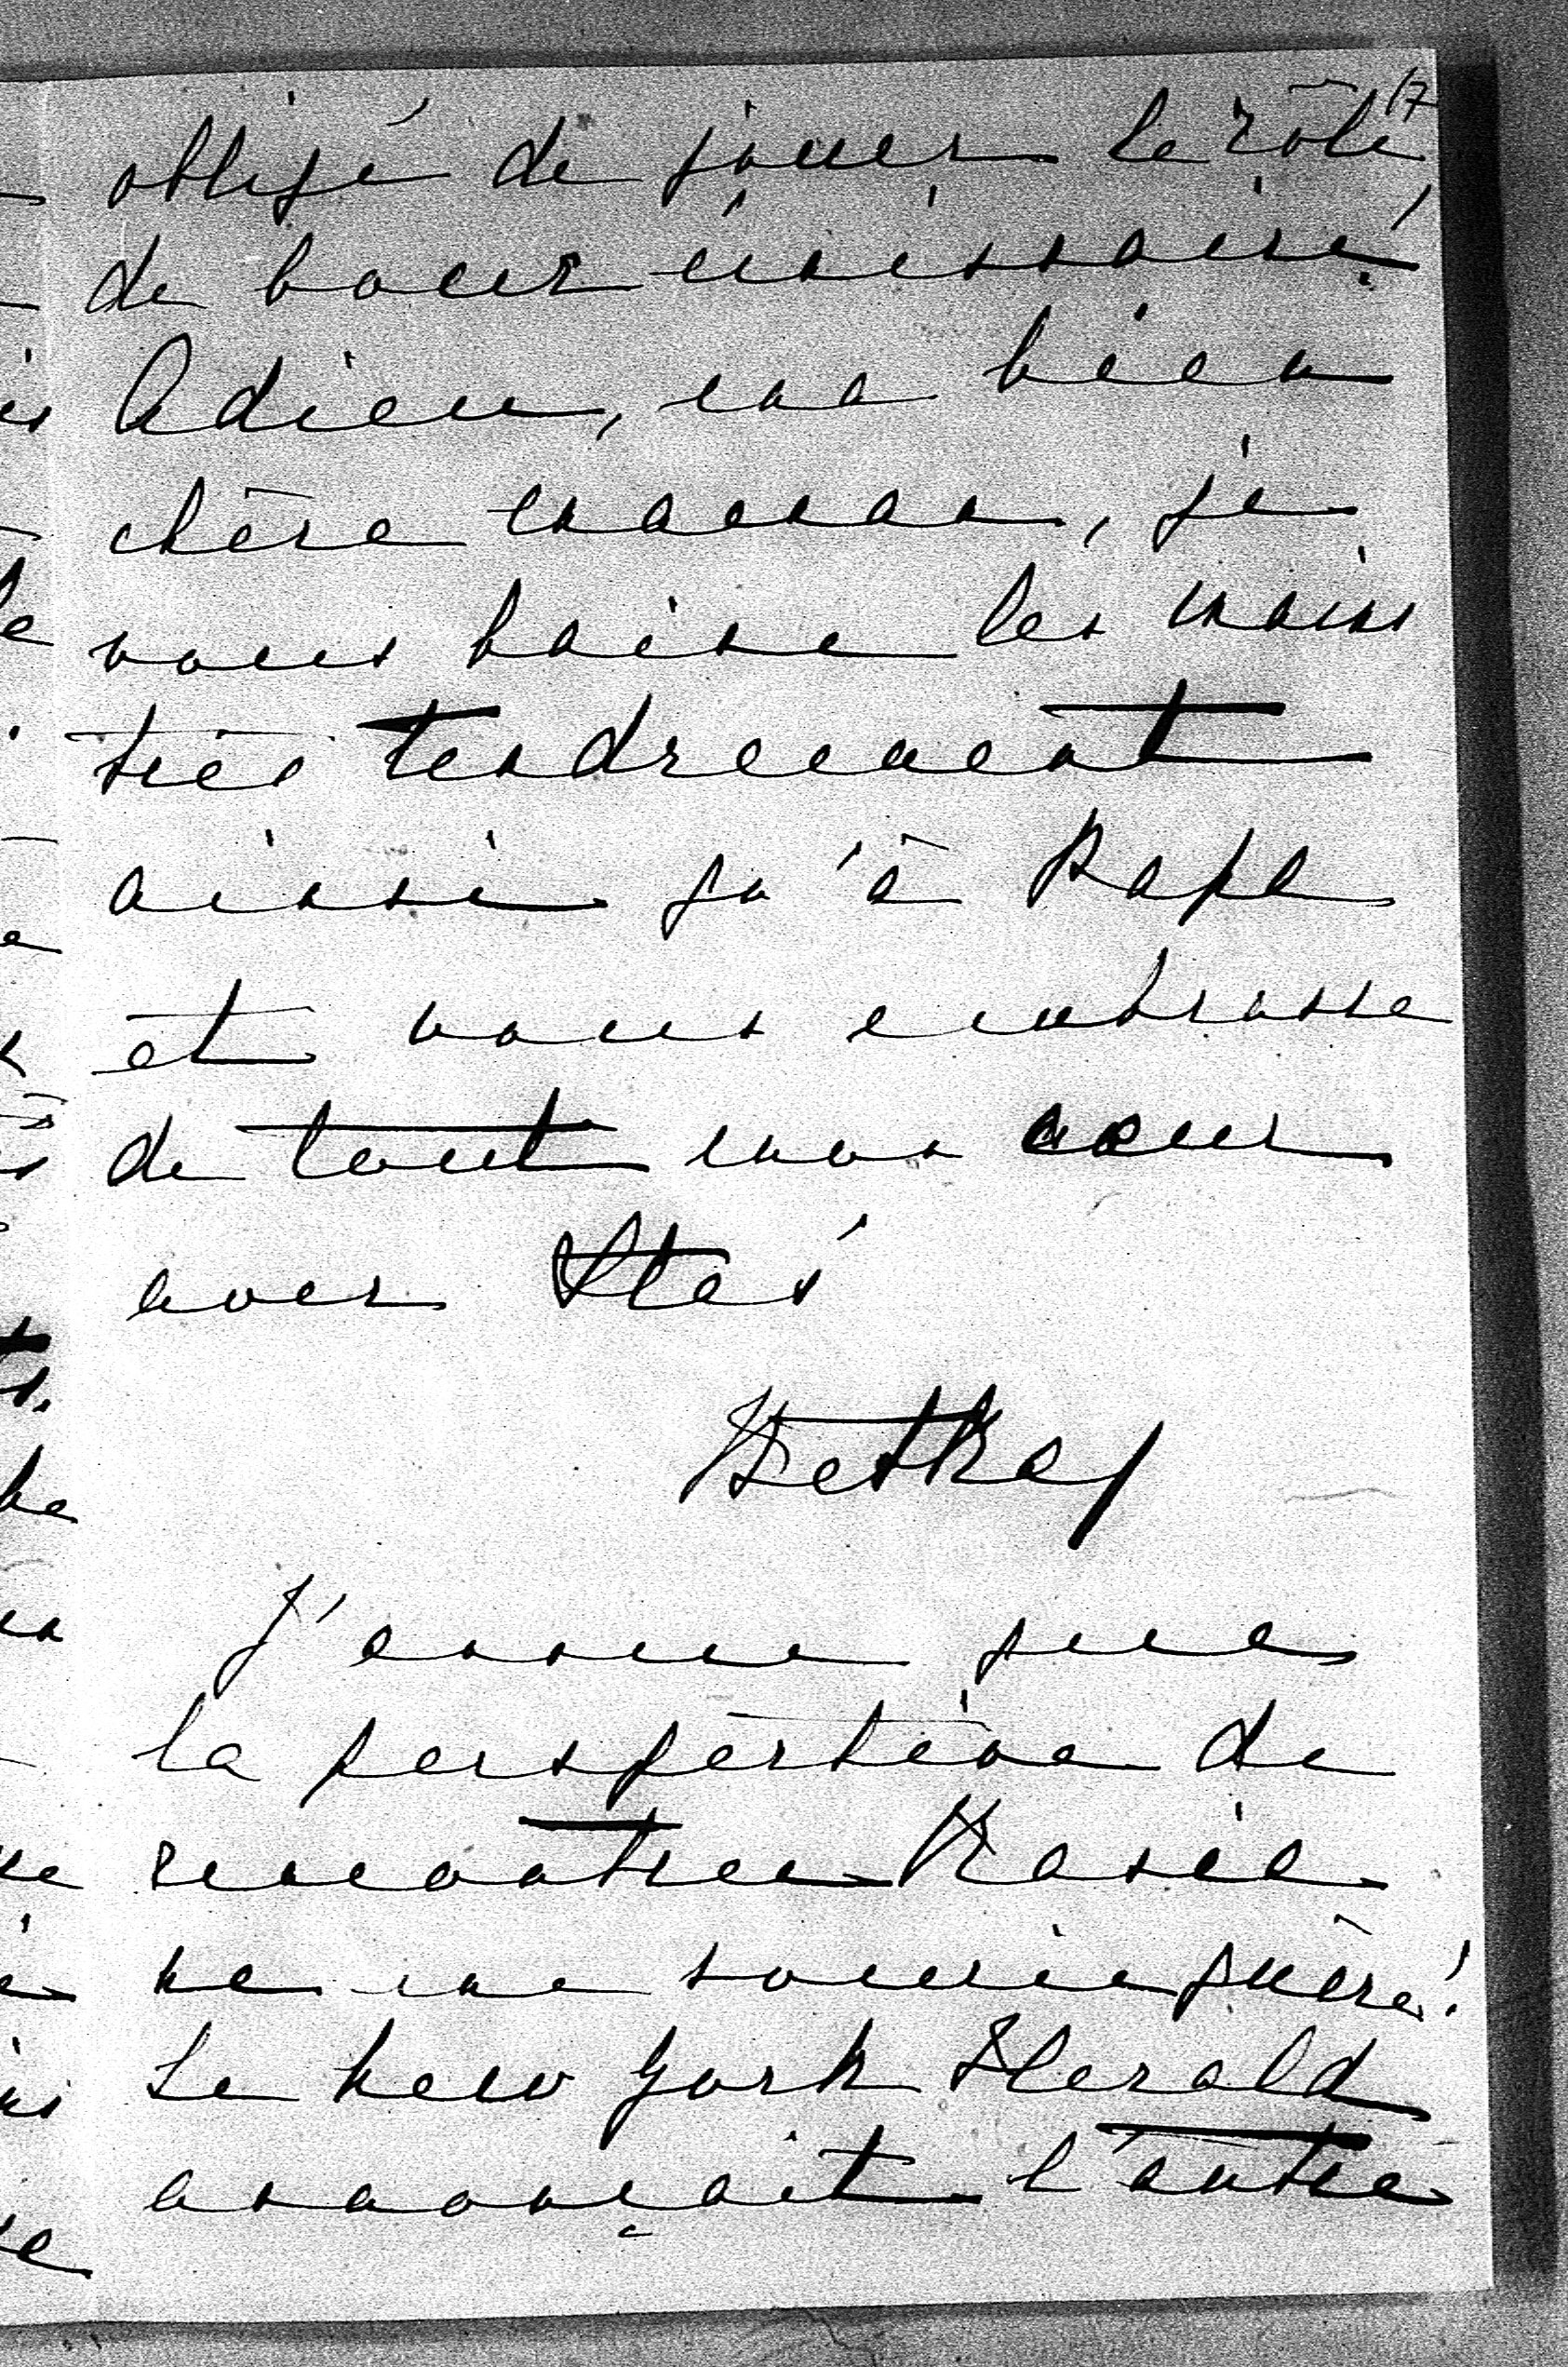 17
obligé de jouer le rôle
de bouc émissaire!
Adieu, ma bien
chère maman, je
vous baise les mains
très tendrement
ainsi qu'à Papa
et vous embrasse
de tout mon cœur
avec
J'avoue que
la perspective de
rencontrer
ne me sourit guère!
Le New York Herald
annonçait l'autre